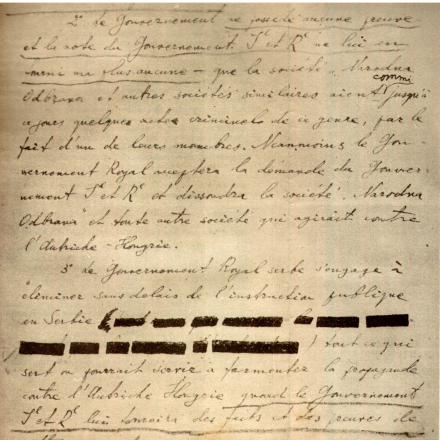 2º Le Gouvernement ne possède aucune preuve
et la note du Gouvernement I et R ne lui en
fourni non plus aucune – que la société "Narodna
commi
Odbrana" et autres sociétés similaires aient jusqu'à
ce jours quelques actes criminels de ce genre, par le
fait d'un de leurs membres. Néanmoins le Gou-
vernement Royal acceptera la demande du Gouver-
nement I et R et dissoudra la société "Narodna
Odbrana" et toute autre société qui agirait contre
l'Autriche-Hongrie.
3º Le Gouvernement Royal serbe s'engage à
éliminer sans délais de l'instruction publique
en Serbie
) tout ce qui
sert ou pourrait servir à fomenter la propagande
contre l'Autriche Hongrie quand le Gouvernement
I et R lui fournira des faits et des preuves de